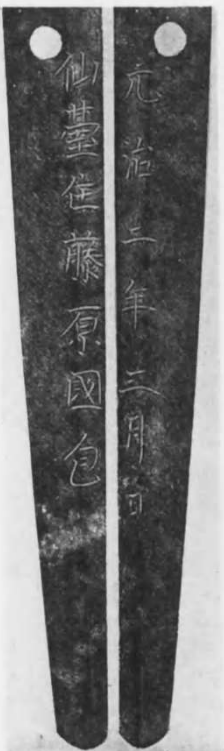 元治二年三月日
仙臺住藤原國包